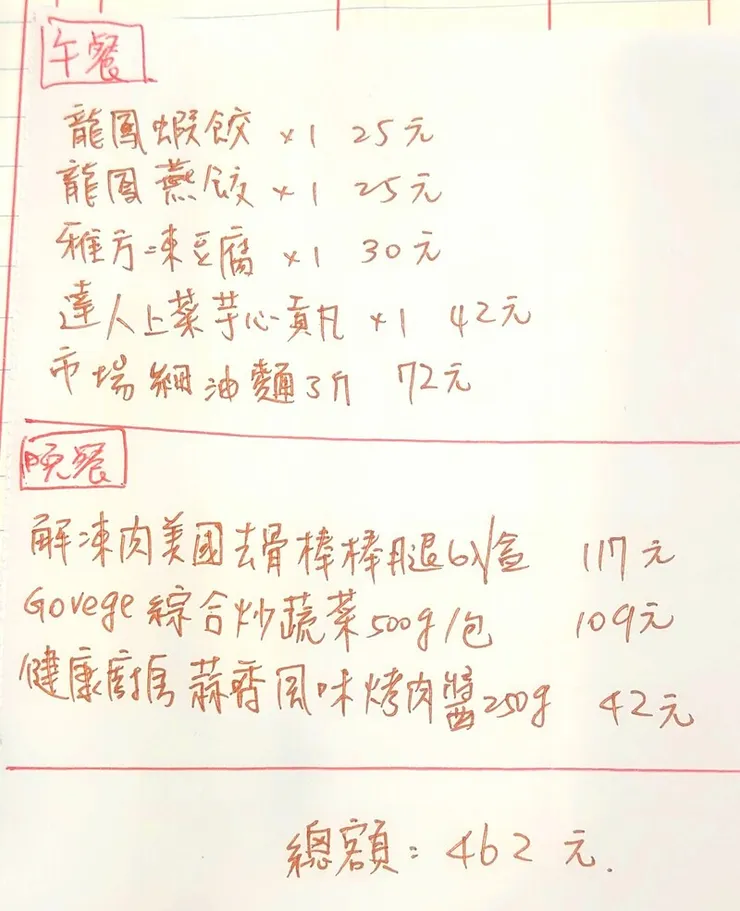 午餐
龍鳳蝦餃 ×1 25元
龍鳳燕餃 ×1 25元
雅方凍豆腐 ×1 30元
達人上菜芋心貢丸 ×1 42元
市場細油麵3斤 72元
晚餐
解凍肉美國去骨棒棒腿6入/盒 117元
Govege 綜合炒蔬菜500g/包 109元
健康廚房 蒜香風味烤肉醬250g 42元
總額: 462元.